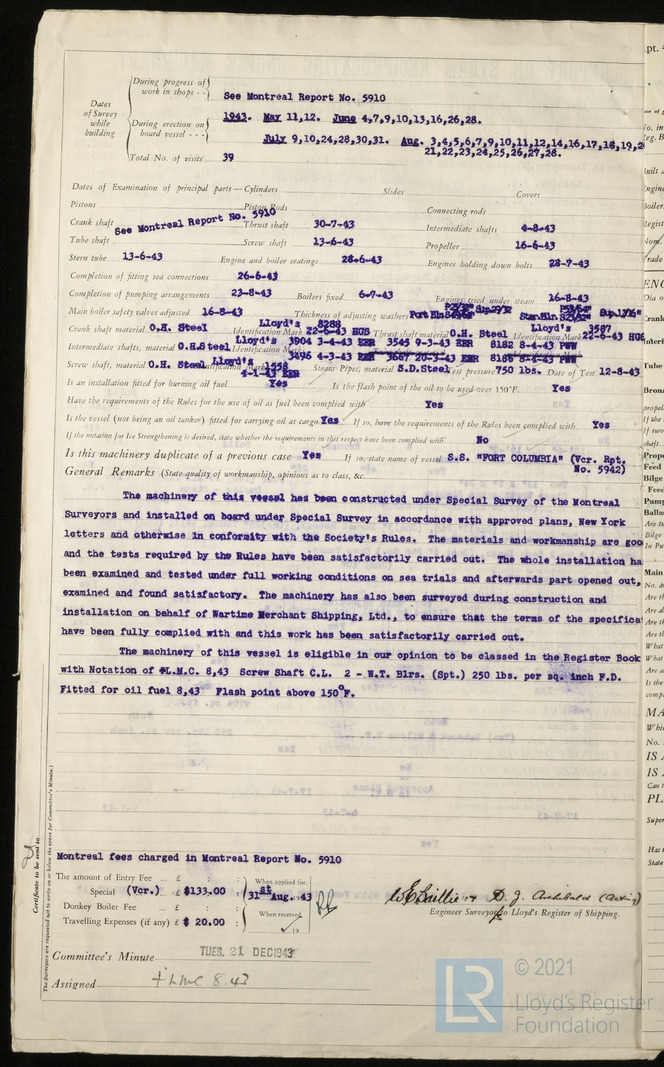 During progress of
work in shops - -
See Montreal Report No. 5910
Dates
of Survey
while
building
During erection on
board vessel - - -
1943. May 11,12. June 4,7,9,10,13,16,26,28.
July 9,10,24,28,30,31. Aug. 3,4,5,6,7,9,10,11,12,14,16,17,18,19,2
21,22,23,24,25,26,27,28.
Total No. of visits 39
Dates of Examination of principal parts—Cylinders Slides Covers
Pistons Piston Rods Connecting rods
Crank shaft See Montreal Report No. 5910 Thrust shaft 30-7-43 Intermediate shafts 4-8-43
Tube shaft Screw shaft 13-6-43 Propeller 16-6-43
Stern tube 13-6-43 Engine and boiler seatings 28-6-43 Engines holding down bolts 28-7-43
Completion of fitting sea connections 26-6-43
Completion of pumping arrangements 23-8-43 Boilers fixed 6-7-43 Engines tried under steam 16-8-43
Main boiler safety valves adjusted 16-8-43 Thickness of adjusting washers
Crank shaft material O.H. Steel Identification Mark Lloyd's 8288 22-6-43 HGS Thrust shaft material O.H. Steel Identification Mark Lloyd's 3587 22-6-43 HGS
Intermediate shafts, material O.H.Steel Identification Marks Lloyd's 3904 3-4-43 EER 3545 9-3-43 EER 8182 8-4-43 PWW
3496 4-3-43 EER 3667 20-3-43 EER 8186 8-4-43 PWW
Screw shaft, material O.H. Steel Identification Mark Lloyd's 1558 4-1-43 EER Steam Pipes, material S.D.Steel Test pressure 750 lbs. Date of Test 12-8-43
Is an installation fitted for burning oil fuel Yes Is the flash point of the oil to be used over 150°F. Yes
Have the requirements of the Rules for the use of oil as fuel been complied with Yes
Is the vessel (not being an oil tanker) fitted for carrying oil as cargo Yes If so, have the requirements of the Rules been complied with Yes
If the notation for Ice Strengthening is desired, state whether the requirements in this respect have been complied with No
Is this machinery duplicate of a previous case Yes If so, state name of vessel S.S. "FORT COLUMBIA" (Vcr. Rpt.
No. 5942)
General Remarks (State quality of workmanship, opinions as to class, &c.
The machinery of this vessel has been constructed under Special Survey of the Montreal
Surveyors and installed on board under Special Survey in accordance with approved plans, New York
letters and otherwise in conformity with the Society's Rules. The materials and workmanship are goo
and the tests required by the Rules have been satisfactorily carried out. The whole installation ha
been examined and tested under full working conditions on sea trials and afterwards part opened out,
examined and found satisfactory. The machinery has also been surveyed during construction and
installation on behalf of Wartime Merchant Shipping, Ltd., to ensure that the terms of the specifica
have been fully complied with and this work has been satisfactorily carried out.
The machinery of this vessel is eligible in our opinion to be classed in the Register Book
with Notation of +L.M.C. 8,43 Screw Shaft C.L. 2 - W.T. Blrs. (Spt.) 250 lbs. per sq. inch F.D.
Fitted for oil fuel 8,43 Flash point above 150°F.
Montreal fees charged in Montreal Report No. 5910
The amount of Entry Fee ... £ : : When applied for,
Special (Vcr.) £ $133.00 : 31st Aug. 1943
Donkey Boiler Fee ... £ : :
Travelling Expenses (if any) £ $ 20.00 : When received,
19
W E Baillie D. J. Archibald (Acting)
Engineer Surveyor to Lloyd's Register of Shipping.
Committee's Minute TUES. 21 DEC 1943
Assigned + LMC 8.43
Certificate to be sent to
The Surveyors are requested not to write on or below the space for Committee's Minute.
LR
© 2021
Lloyd's Register
Foundation